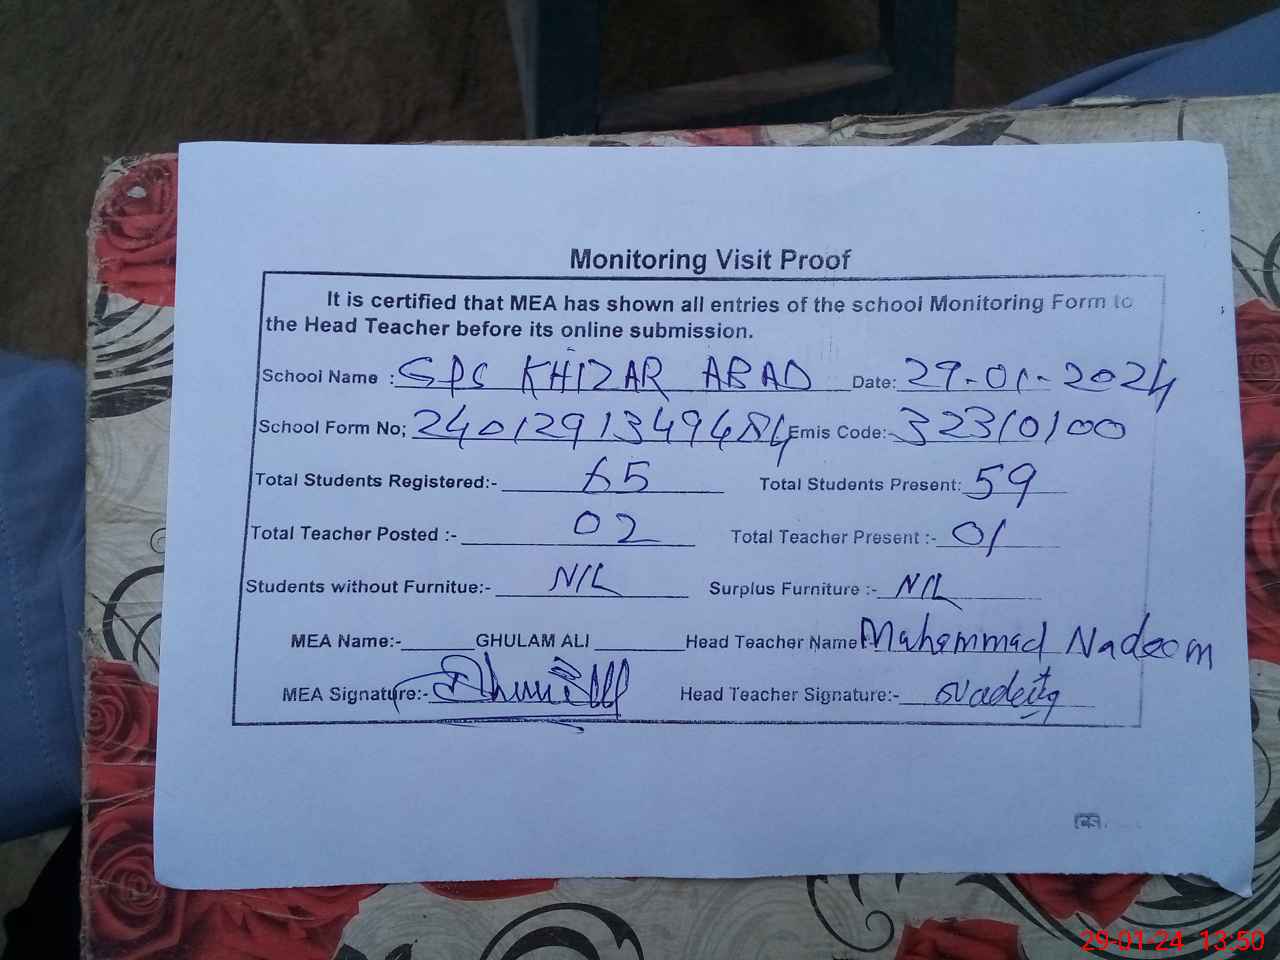 Monitoring Visit Proof
It is certified that MEA has shown all entries of the school Monitoring Form to
the Head Teacher before its online submission.
School Name : GPS KHIZAR ABAD Date: 29-01-2024
School Form No; 24012913494684 Emis Code:- 32310100
Total Students Registered:- 65 Total Students Present: 59
Total Teacher Posted :- 02 Total Teacher Present :- 01
Students without Furnitue:- NIL Surplus Furniture :- NIL
MEA Name:- GHULAM ALI Head Teacher Name:- Mahammad Nadeem
MEA Signature:- Head Teacher Signature:-
CS
29-01-24 13:50